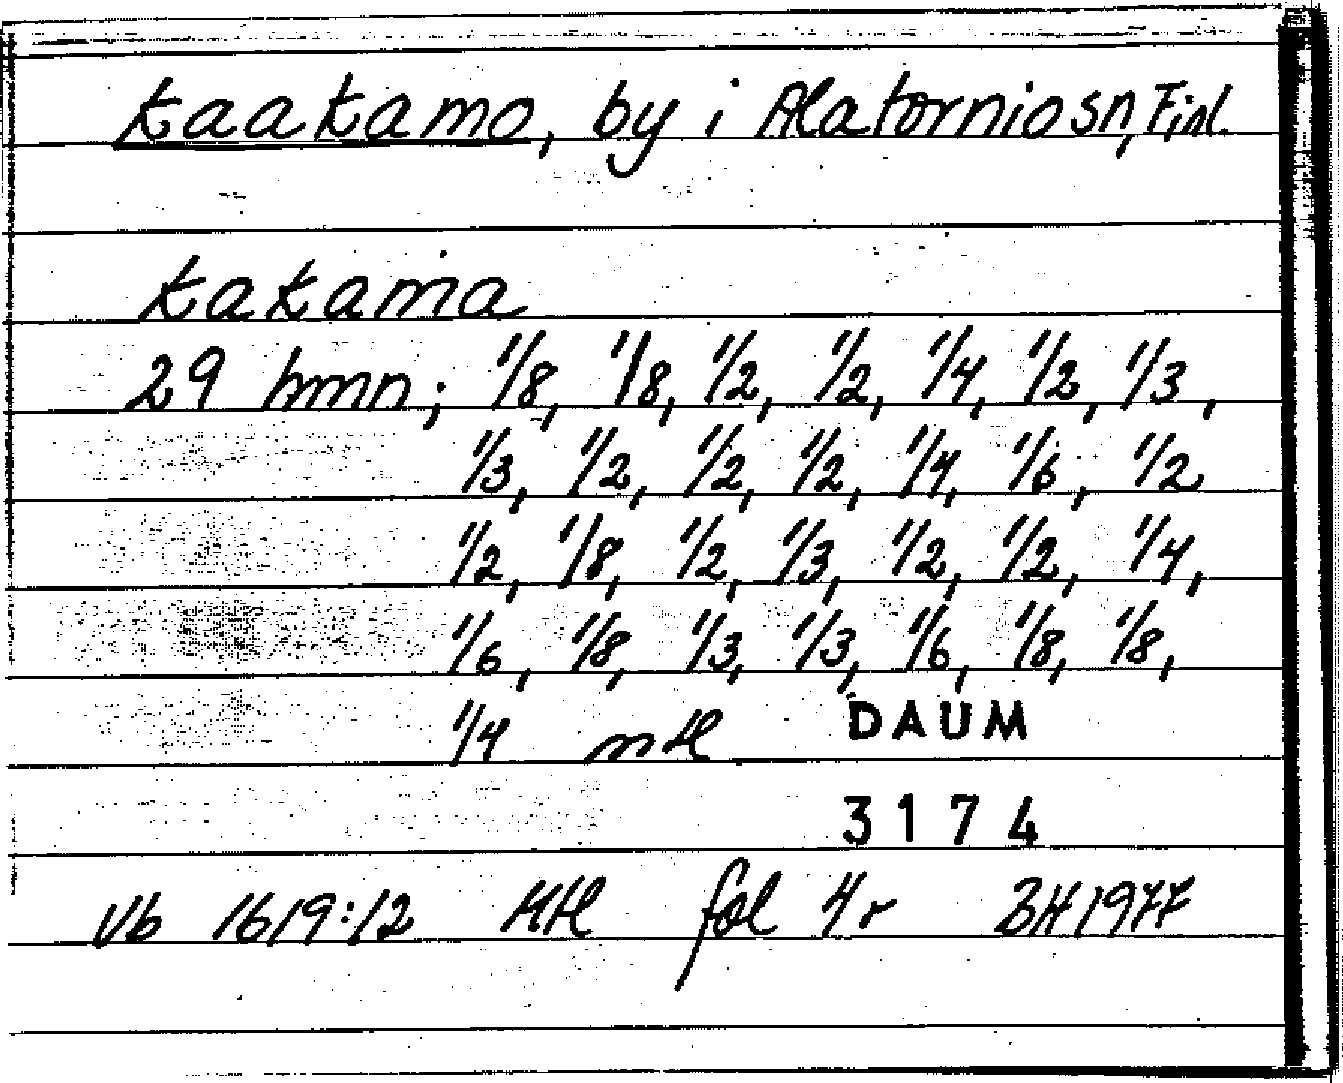 Kaakamo, by i Alatornio sn, Finl.
Kakama
29 hmn; 1/8, 1/8, 1/2, 1/2, 1/4, 1/2, 1/3,
1/3, 1/2, 1/2, 1/2, 1/4, 1/6, 1/2
1/2, 1/8, 1/2, 1/3, 1/2, 1/2, 1/4,
1/6, 1/8, 1/3, 1/3, 1/6, 1/8, 1/8,
1/4 mtl DAUM
3174
Vb 1619:12 Mtl fol 4r BH 1977